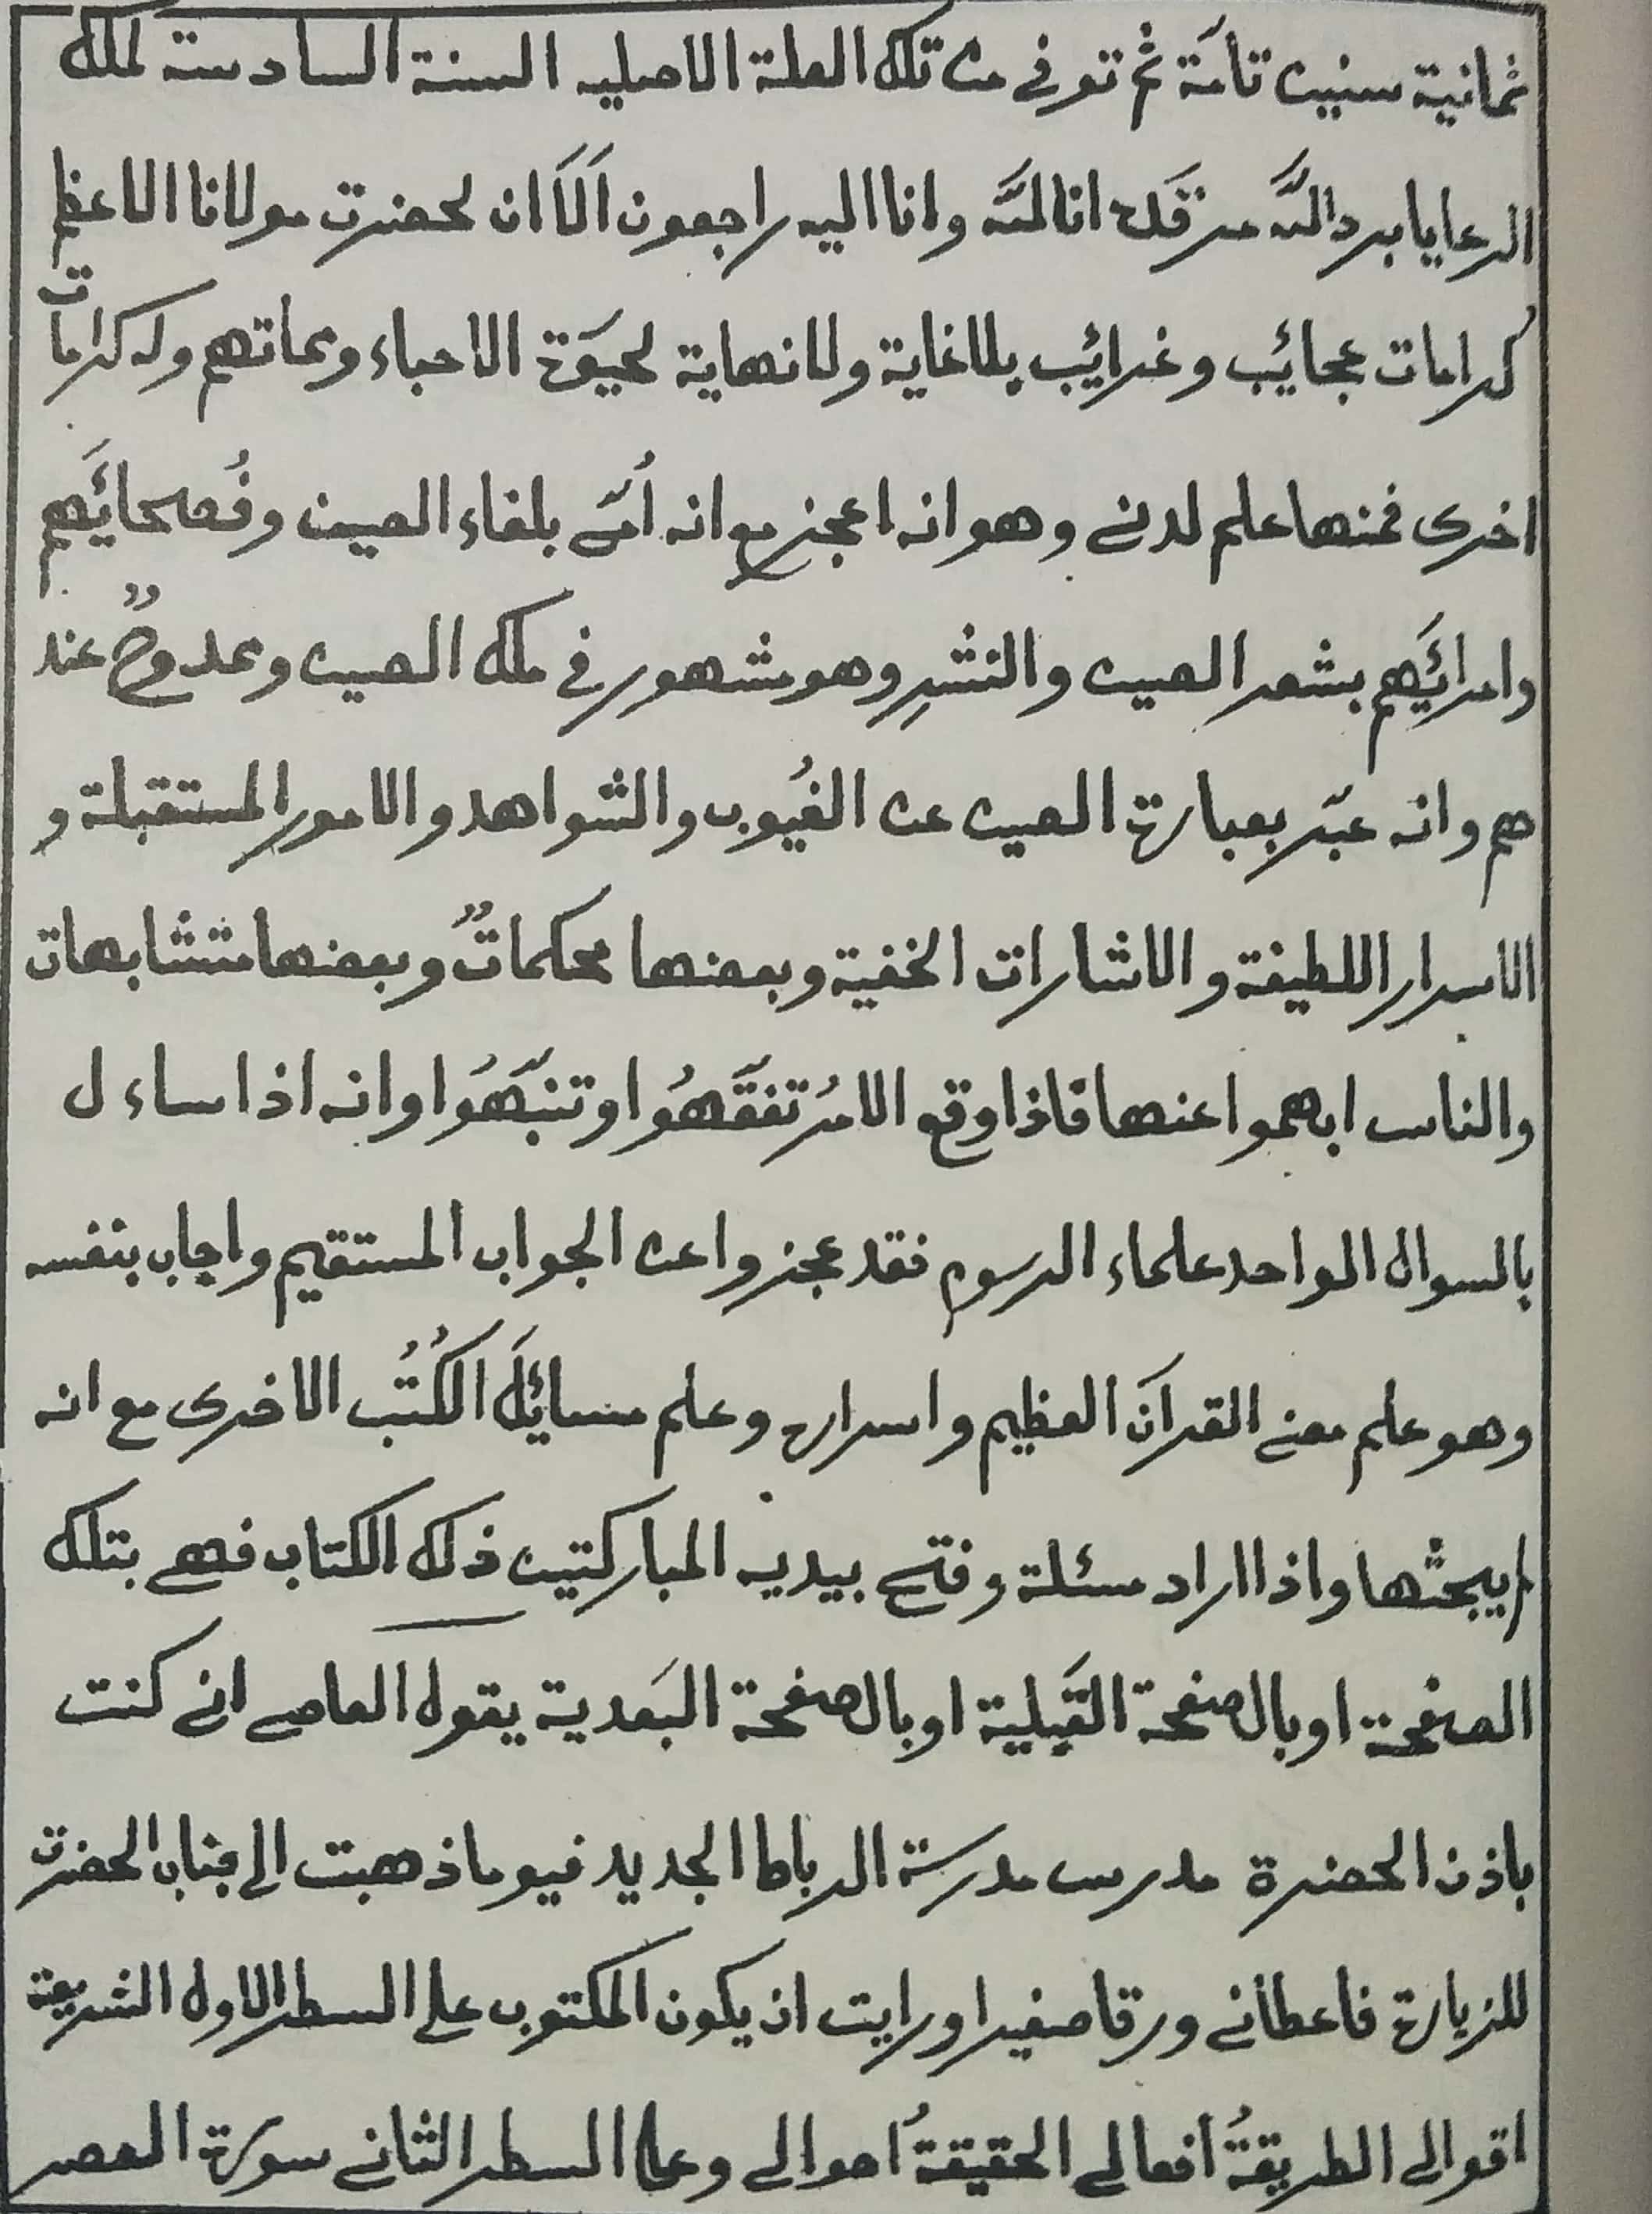 ثمانية سنين تامَة ثم توفى من تلك العلة الاصليه السنة السادسة لملك
الرعايا برد اللَه مرقَده انا للَه وانا اليه راجعون اَلَا ان لحضرت مولانا الاعظم
كرامات عجائب و غرائب بلاغاية ولانهاية لحيَوة الاحباء ومماتهم وله كرامات
اخرى فمنها علم لدنى وهو انه اعجز مع انه اُمّى بلغاء الصين وفُصحائَهم
وامرائَهم بشعر الصين والنثرِ وهو مشهور فى ملك الصين وممدوحٌ عند
هم وانه عبّر بعبارة الصين عن الغُيوب والشواهد والامور المستقبلة و
الاسرار اللطيفة والاشارات الخفية وبعضها محكماتٌ وبعضها متشابهات
والناس ابهموا عنها فاذا وقع الامرُ تفقَّهُوا وتنبّهَوا وانه اذا ساءل
بالسوال الواحد علماء الرسوم فقد عجزوا عن الجواب المستقيم واجاب بنفسه
وهو علم معنى القرآن العظيم واسراره وعلم مسائلَ الكُتُب الاخرى مع انه
لم يبحثها واذا اراد مسئلة وفتح بيديه المباركتين ذلك الكتاب فهى بتلك
الصفحة او بال صفحة القَبلية او بال صفحة البَعدية يقول العاصى انى كنت
باذن الحضرة مدرس مدرسة الرباط الجديد فيوما ذهبت الى جناب الحضرت
للزيارة فاعطانى ورقا صغيرا ورايت ان يكون المكتوب على السطر الاول الشريعة
اقوالى الطريقةُ افعالى الحقيقةُ احوالى وعلى السطر الثانى سورة العصر